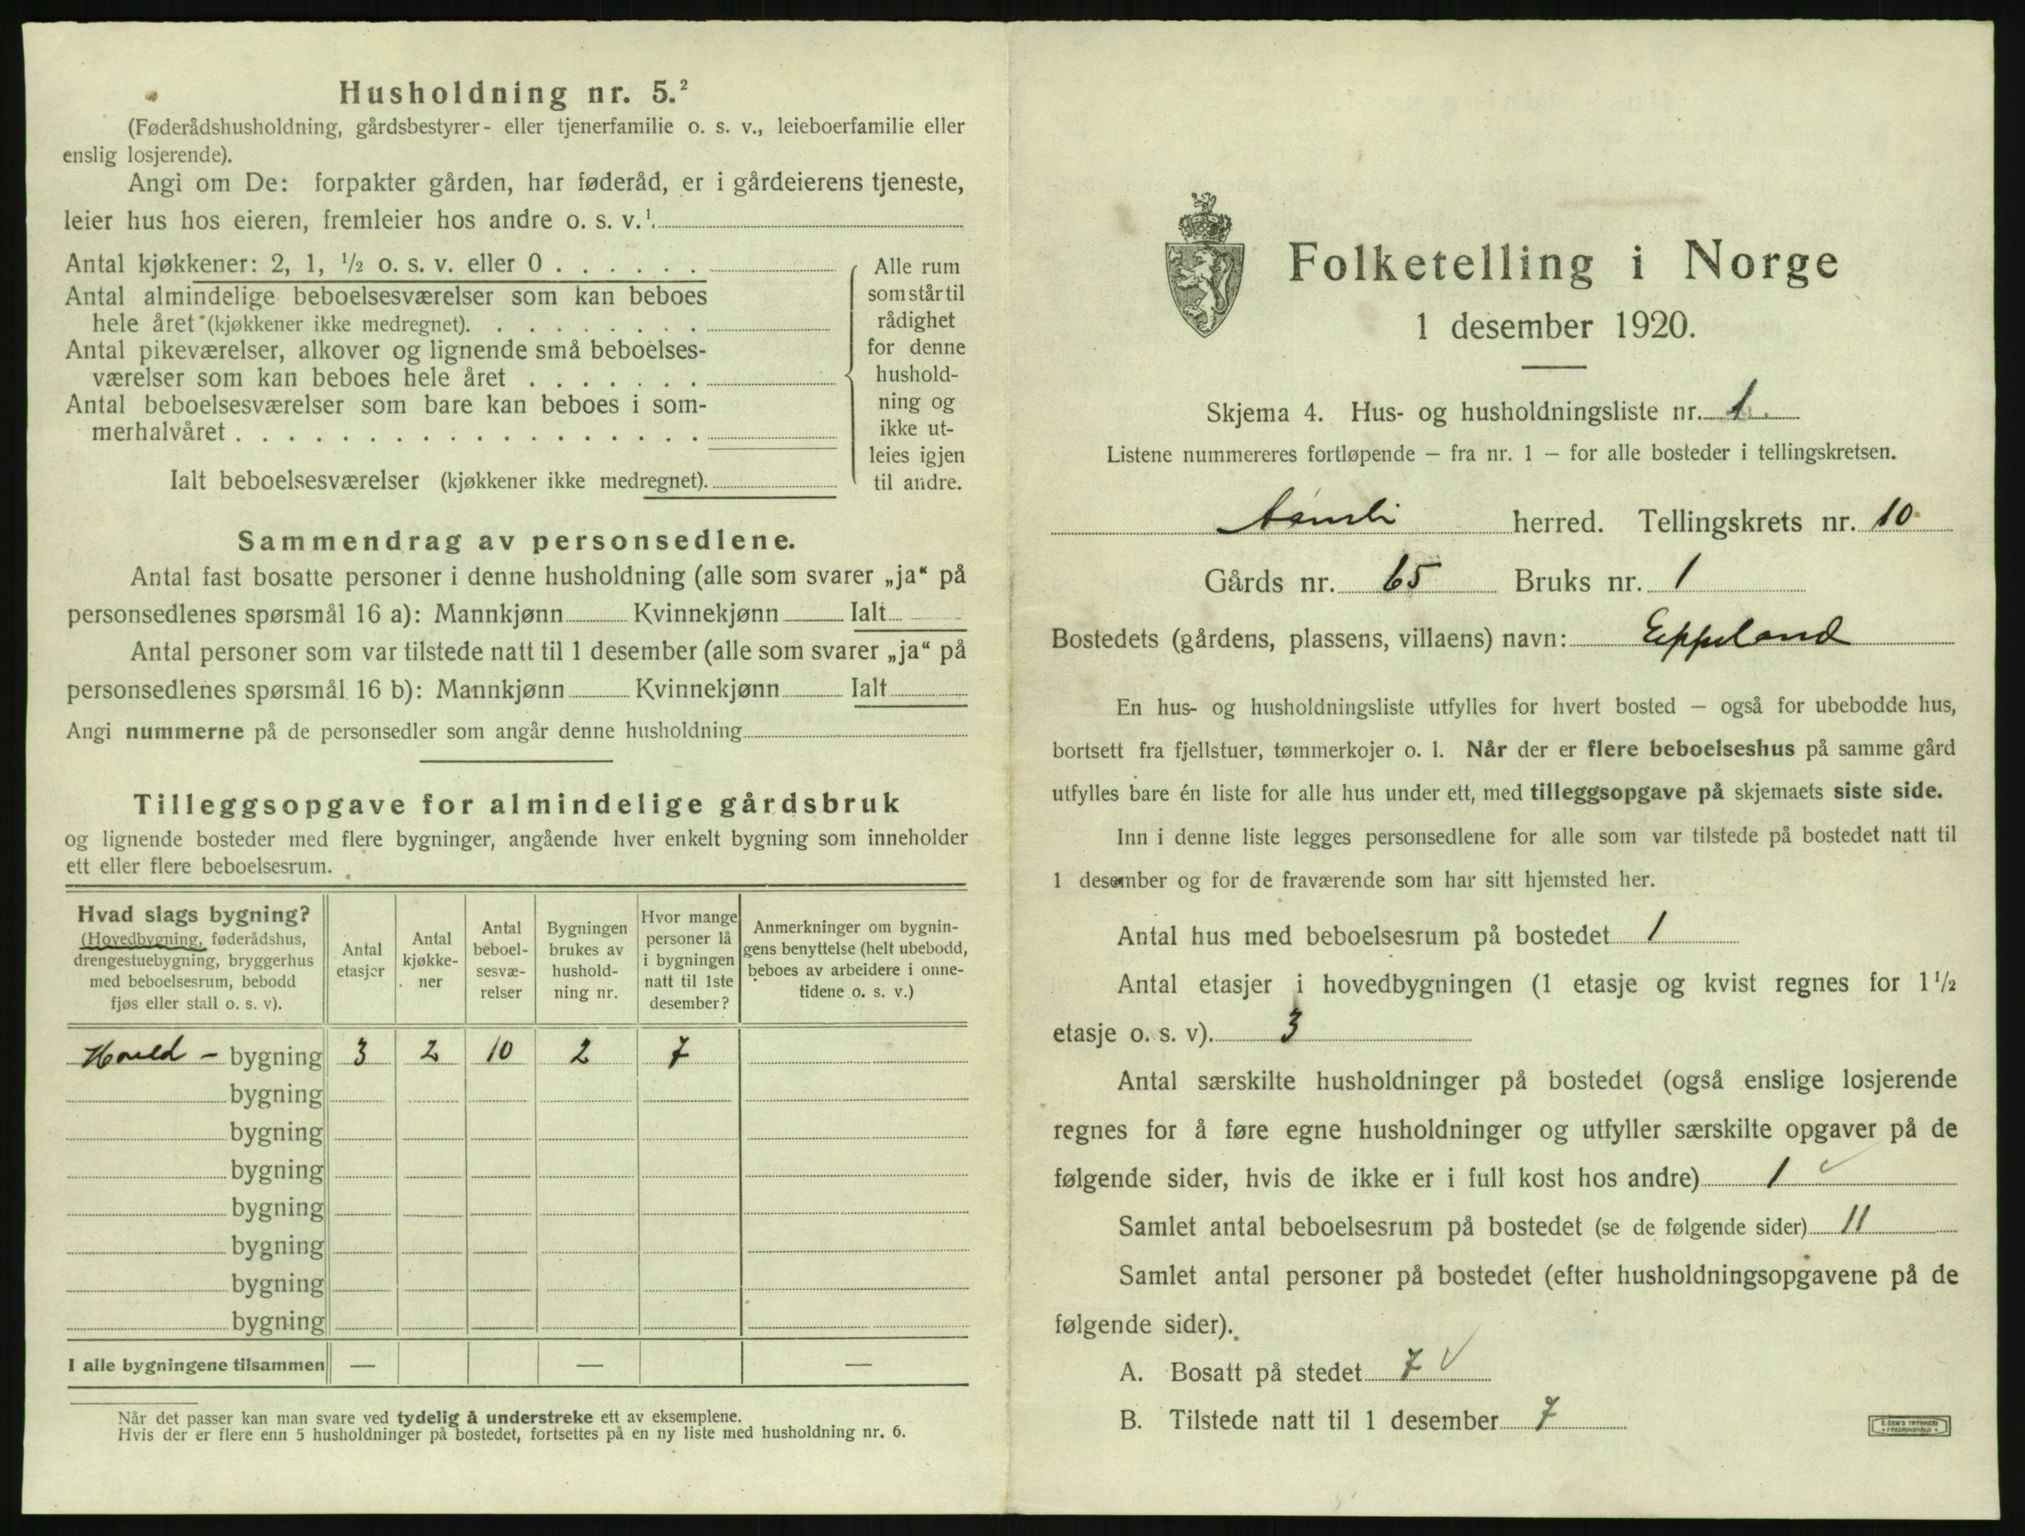 Husholdning nr. 5.²
(Føderådshusholdning, gårdsbestyrer- eller tjenerfamilie o. s. v., leieboerfamilie eller
enslig losjerende).
Angi om De: forpakter gården, har føderåd, er i gårdeierens tjeneste,
leier hus hos eieren, fremleier hos andre o. s. v.¹
Antal kjøkkener: 2, 1, ½ o. s. v. eller 0 . . . . . .
Antal almindelige beboelsesværelser som kan beboes
hele året (kjøkkener ikke medregnet). . . . . . . . .
Antal pikeværelser, alkover og lignende små beboelses-
værelser som kan beboes hele året . . . . . . .
Antal beboelsesværelser som bare kan beboes i som-
merhalvåret . . . . . . . . . . . . . . . . . .
Ialt beboelsesværelser (kjøkkener ikke medregnet).
Alle rum
som står til
rådighet
for denne
hushold-
ning og
ikke ut-
leies igjen
til andre.
Sammendrag av personsedlene.
Antal fast bosatte personer i denne husholdning (alle som svarer „ja“ på
personsedlenes spørsmål 16 a): Mannkjønn Kvinnekjønn Ialt
Antal personer som var tilstede natt til 1 desember (alle som svarer „ja“ på
personsedlenes spørsmål 16 b): Mannkjønn Kvinnekjønn Ialt
Angi nummerne på de personsedler som angår denne husholdning
Tilleggsopgave for almindelige gårdsbruk
og lignende bosteder med flere bygninger, angående hver enkelt bygning som inneholder
ett eller flere beboelsesrum.
Hvad slags bygning?
(Hovedbygning, føderådshus,
drengestuebygning, bryggerhus
med beboelsesrum, bebodd
fjøs eller stall o. s. v).
Antal
etasjer
Antal
kjøkke-
ner
Antal
beboel-
sesvæ-
relser
Bygningen
brukes av
hushold-
ning nr.
Hvor mange
personer lå
i bygningen
natt til 1ste
desember?
Anmerkninger om bygnin-
gens benyttelse (helt ubebodd,
beboes av arbeidere i onne-
tidene o. s. v.)
Hoved - bygning 3 2 10 2 7
bygning
bygning
bygning
bygning
bygning
bygning
bygning
I alle bygningene tilsammen — — —
Når det passer kan man svare ved tydelig å understreke ett av eksemplene.
Hvis der er flere enn 5 husholdninger på bostedet, fortsettes på en ny liste med husholdning nr. 6.
Folketelling i Norge
1 desember 1920.
Skjema 4. Hus- og husholdningsliste nr. 1.
Listene nummereres fortløpende — fra nr. 1 — for alle bosteder i tellingskretsen.
Aamli herred. Tellingskrets nr. 10
Gårds nr. 65 Bruks nr. 1
Bostedets (gårdens, plassens, villaens) navn: Eppeland
En hus- og husholdningsliste utfylles for hvert bosted — også for ubebodde hus,
bortsett fra fjellstuer, tømmerkojer o. l. Når der er flere beboelseshus på samme gård
utfylles bare én liste for alle hus under ett, med tilleggsopgave på skjemaets siste side.
Inn i denne liste legges personsedlene for alle som var tilstede på bostedet natt til
1 desember og for de fraværende som har sitt hjemsted her.
Antal hus med beboelsesrum på bostedet 1
Antal etasjer i hovedbygningen (1 etasje og kvist regnes for 1½
etasje o. s. v). 3
Antal særskilte husholdninger på bostedet (også enslige losjerende
regnes for å føre egne husholdninger og utfyller særskilte opgaver på de
følgende sider, hvis de ikke er i full kost hos andre) 1 ✓
Samlet antal beboelsesrum på bostedet (se de følgende sider) 11
Samlet antal personer på bostedet (efter husholdningsopgavene på de
følgende sider).
A. Bosatt på stedet 7 ✓
B. Tilstede natt til 1 desember 7